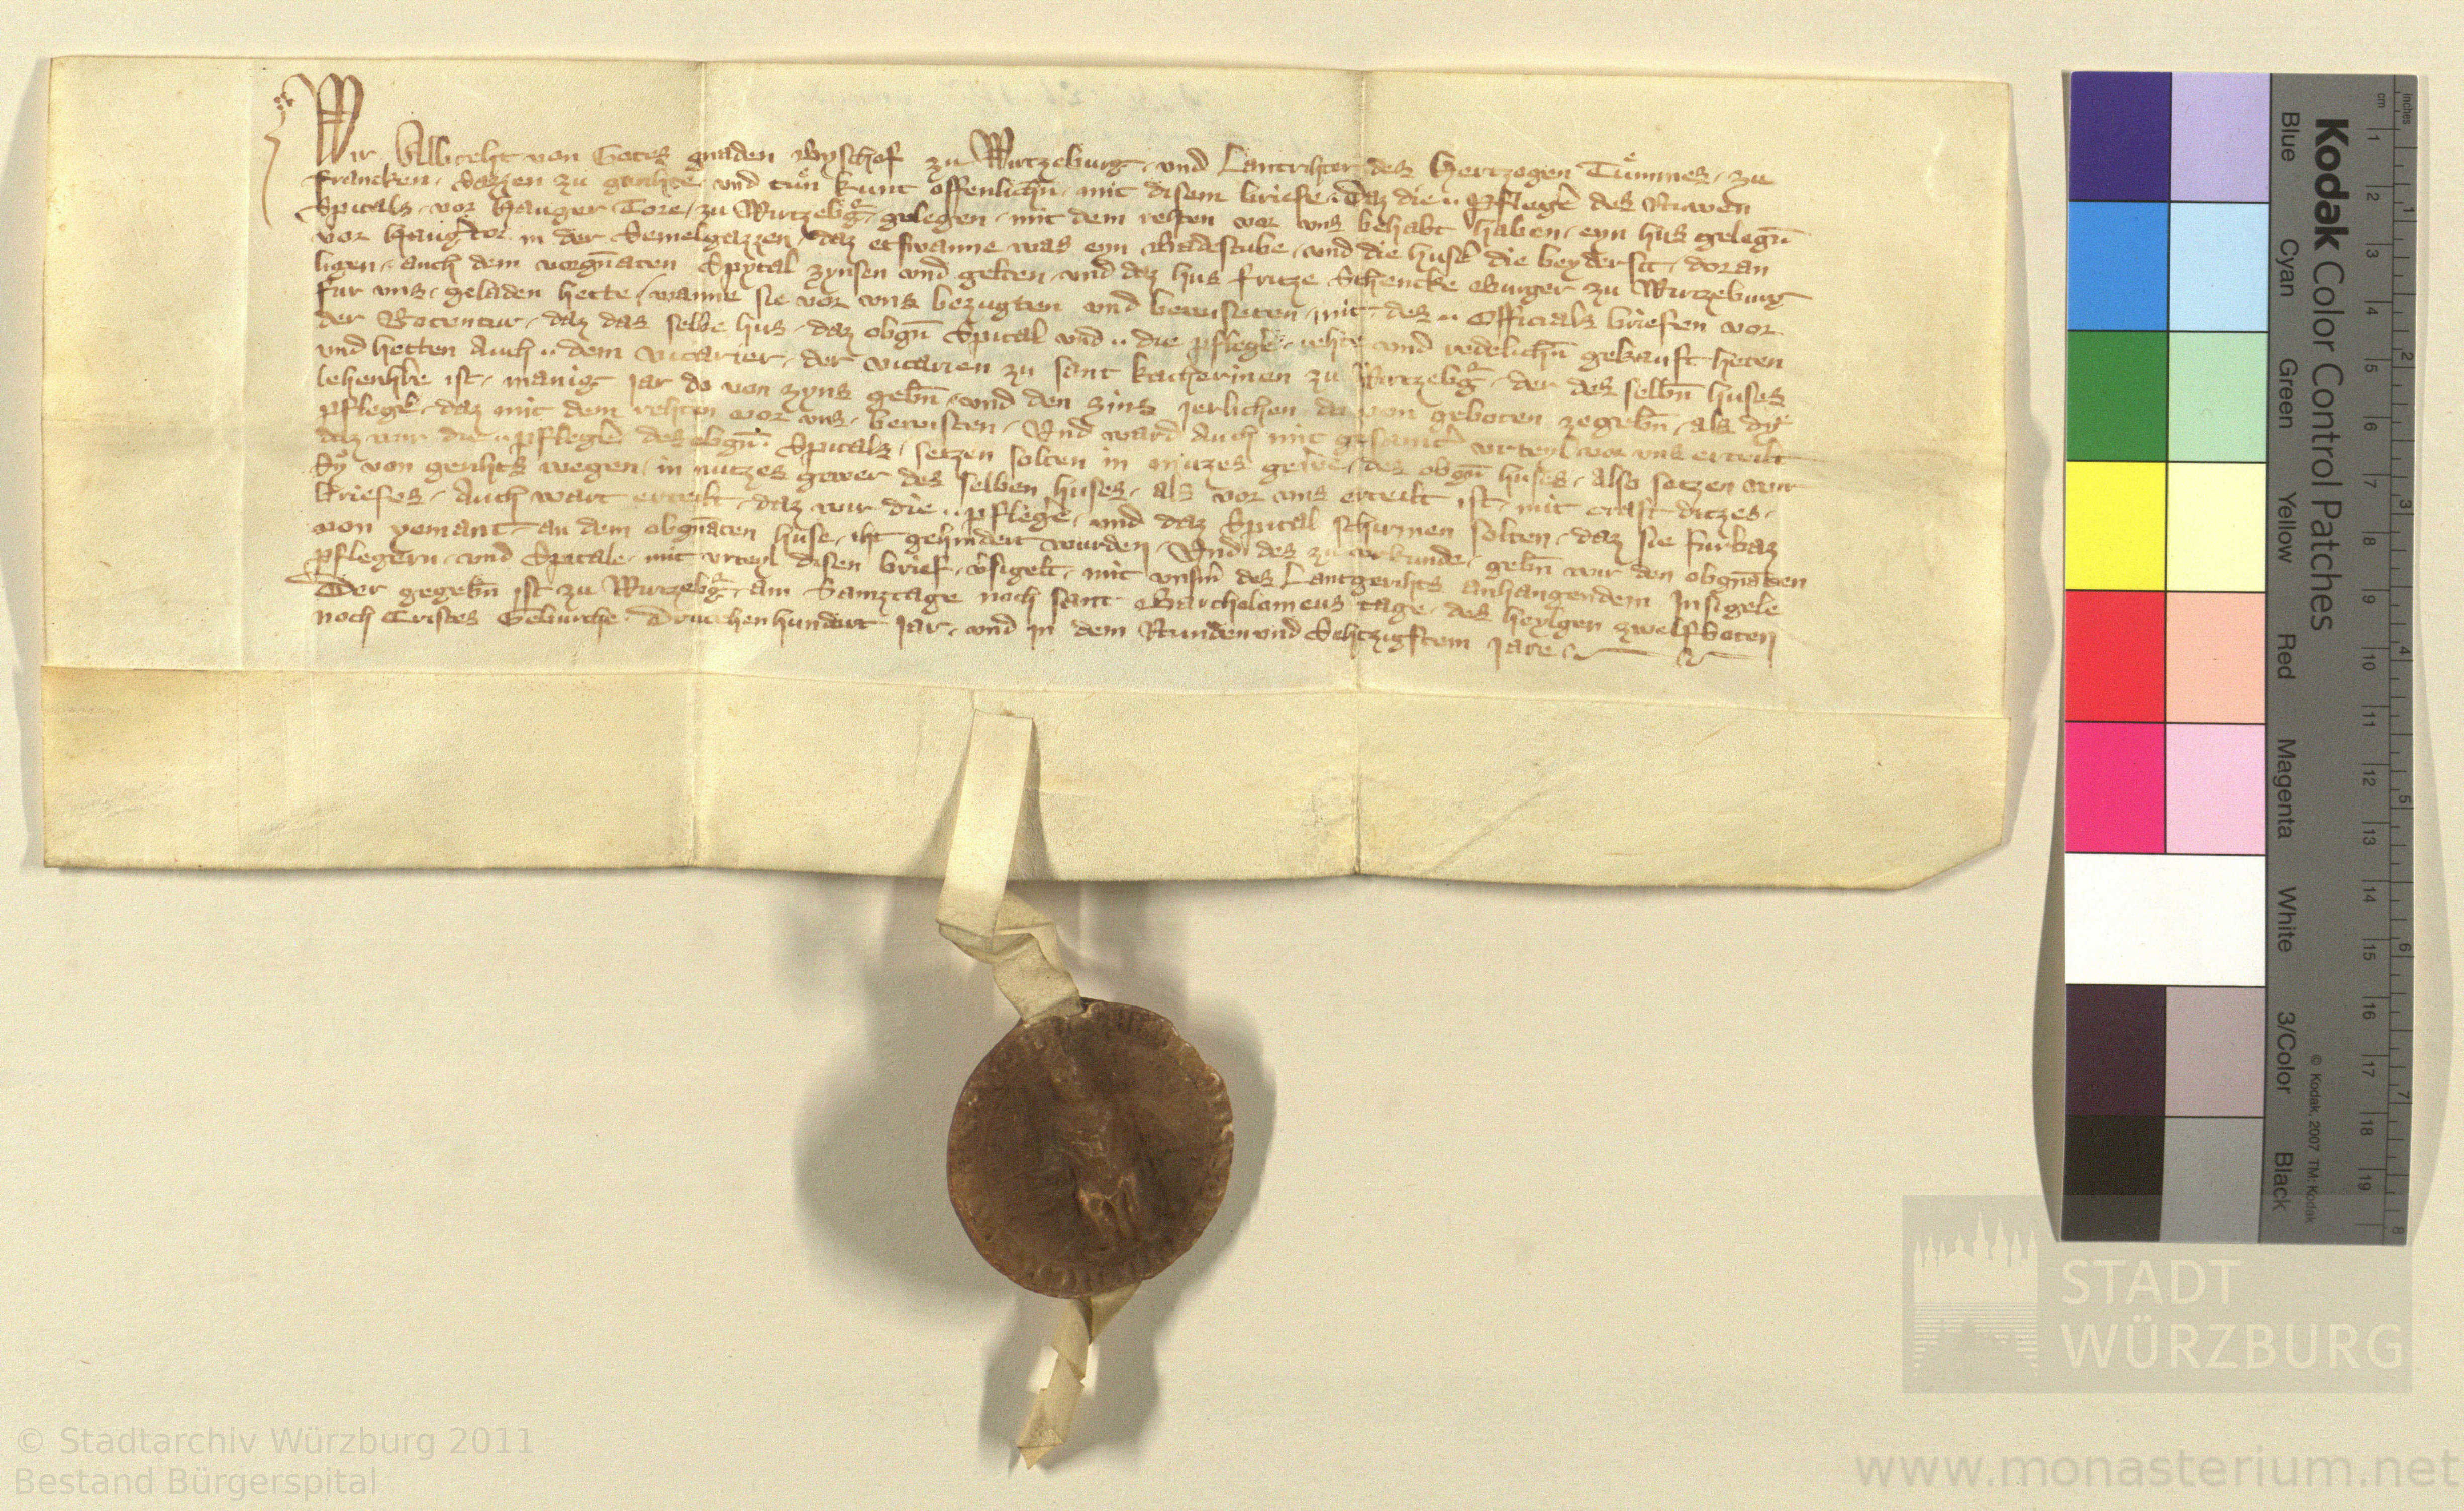 Wir Albreht von Gotes gnaden Byschof zu Wirtzeburg · und Lantrihter des Hertzogen Tuͤmmes · zu
Francken · Sazzen zu gerihte und tuͤn kunt offenlichn̄ · mit disem briefe · Daz die ·· Pflegeͬ des Nuwen
Spitals · vor Hauger Tore / zu Wirtzebḡ · gelegen · mit dem rehten vor uns behabt haben · eyn hus gelegn̄
vor Haugͬtor in der Semelgazzen / daz etswanne was eyn Badestube · und die huseͬ die beydersit · doran
ligen · auch dem vorgn̄aten Spytal zynsen und gelten · und daz hus Fritze Schencke Burger zu Wirtzeburg
fur uns · geladen hette / wanne sie vor uns bezugten und bewiseten · mit des ·· Officials briefen vor
der Rotentur · daz das selbe hus · daz obgn̄ Spital und ·· die pflegeͬ · rehte und redelichn̄ gekauft heten
und hetten Auch ·· dem vicarier · der vicarien zu sant katherinen zu Wirtzebḡ · der des selbn̄ huses
lehenhͬre ist · manig Jar do von zyns gebn̄ · und den Zins Jerlichen da von geboten zegebn̄ · als dy
pflegeͬ · daz mit dem rehten vor uns · bewisten · Und ward Auch mit gesamtͬ urteyl vor uns erteilt
daz wir die ·· pflegeͬ des obgn̄ · Spitals / setzen solten in nuzes gewͬe · des obgn̄ huses · also setzen wir
Sy von gerihts wegen / in nutzes gewer des selben huses · als vor uns erteilt ist · mit craft ditzes ·
briefes · Auch wart erteilt · daz wir die ·· pflegeͬ · und daz Spital schirmen solten · daz sie furbaz
von yemant an dem obgn̄aten huse · iht gehindert wurden · Und des zu urkunde · gebn̄ wir den obgn̄aten
pflegern · und Spitale · mit urteyl disen brief · vͬsigelt · mit unsͬm des Lantgerihts anhangendem Insigele
Der gegebn̄ ist zu Wirtzebḡ · am Samztage noch sant Bartholomeus tage · des heylgen zwelfboten
noch Cristes Geburthe · Druczehenhundert Jar · und in dem Nunden und Sehtzigstem Jare
Kodak Color Control Patches
Blue Cyan Green Yellow Red Magenta White 3/Color Black
© Kodak, 2007 TM: Kodak
inches 1 2 3 4 5 6 7 8
cm 1 2 3 4 5 6 7 8 9 10 11 12 13 14 15 16 17 18 19
STADT
WÜRZBURG
© Stadtarchiv Würzburg 2011
Bestand Bürgerspital
www.monasterium.net